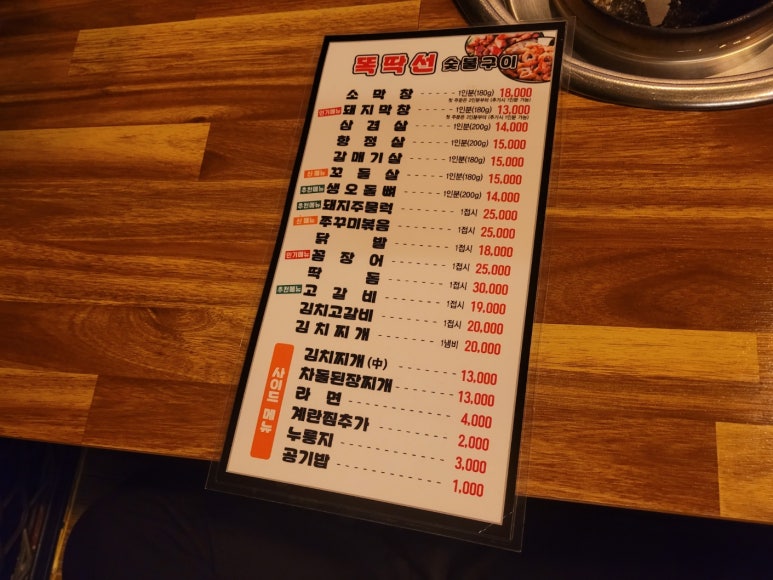 뚝딱선 숯불구이
소막창 1인분(180g) 18,000
첫 주문은 2인분부터 (추가시 1인분 가능)
인기메뉴 돼지막창 1인분(180g) 13,000
첫 주문은 2인분부터 (추가시 1인분 가능)
삼겹살 1인분(200g) 14,000
항정살 1인분(200g) 15,000
갈매기살 1인분(180g) 15,000
신메뉴 꼬들살 1인분(180g) 15,000
추천메뉴 생오돌뼈 1인분(200g) 14,000
추천메뉴 돼지주물럭 1접시 25,000
신메뉴 쭈꾸미볶음 1접시 25,000
닭발 1접시 18,000
인기메뉴 꼼장어 1접시 25,000
딱동 1접시 30,000
추천메뉴 고갈비 1접시 19,000
김치고갈비 1접시 20,000
김치찌개 1냄비 20,000
사이드 메뉴
김치찌개(中) 13,000
차돌된장찌개 13,000
라면 4,000
계란찜추가 2,000
누룽지 3,000
공기밥 1,000